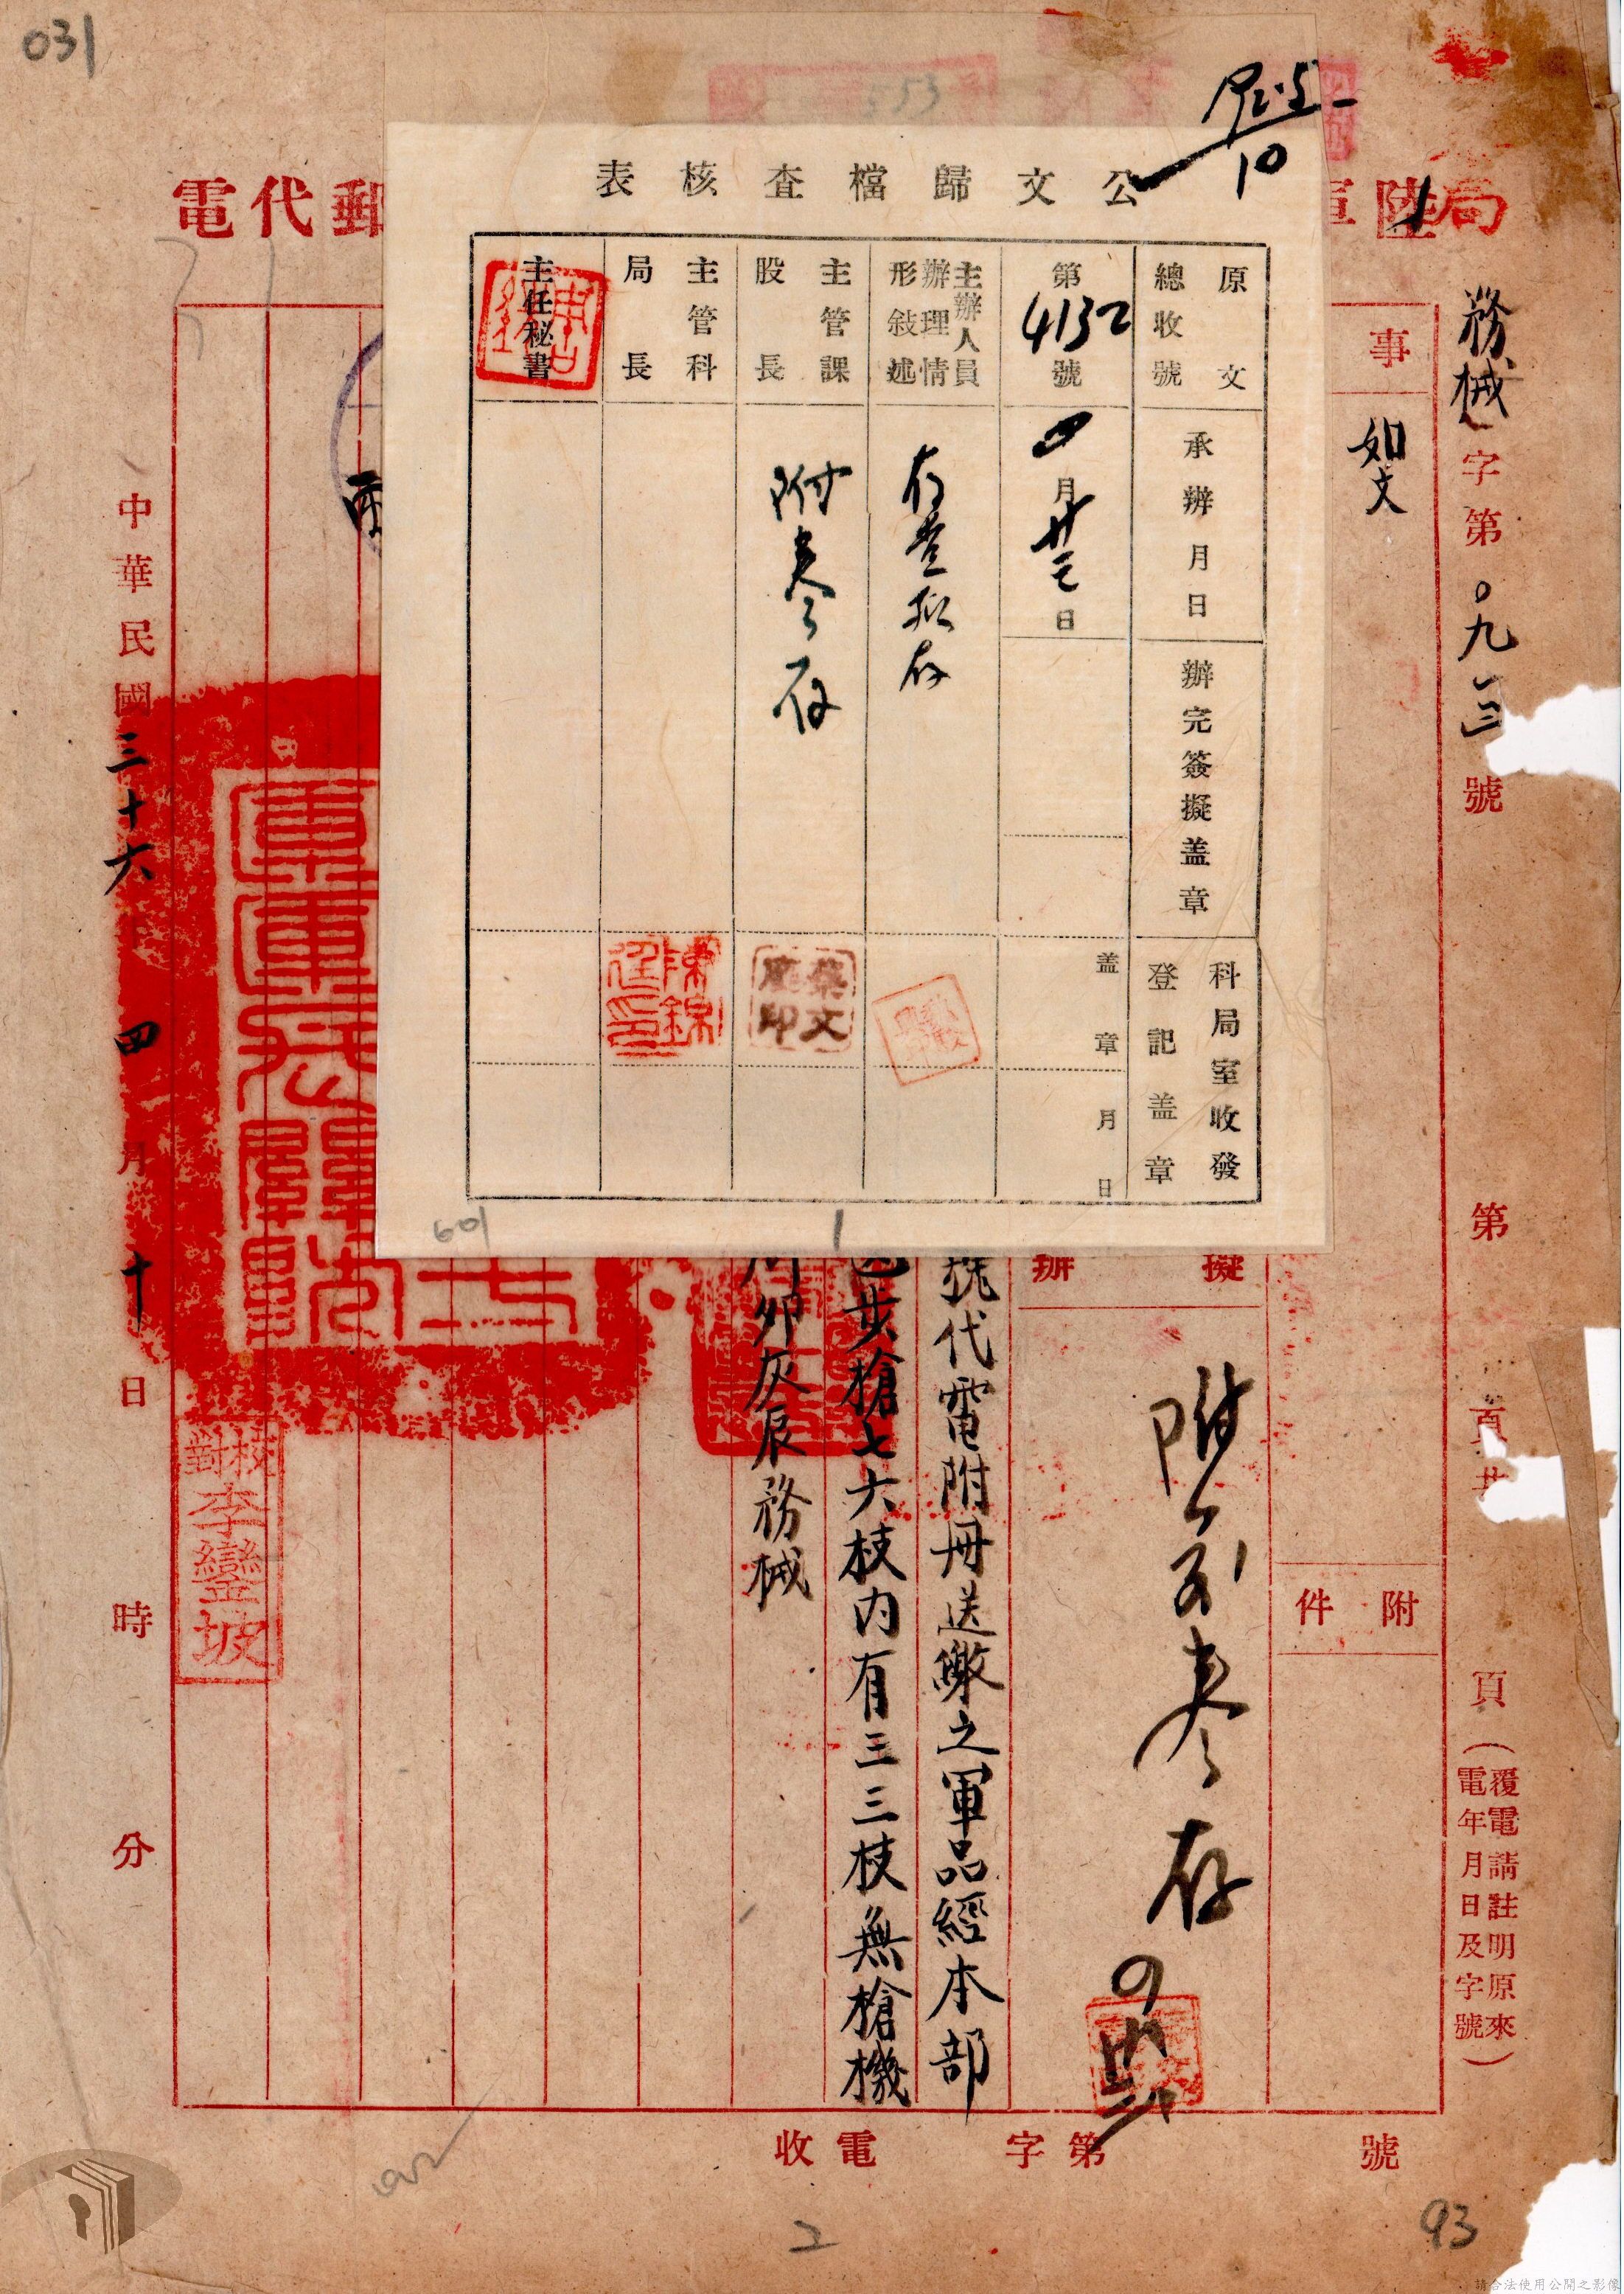 031
553
10
公文歸檔查核表
原文
總收號
第4132號
主辦人員
辦理情
形敍述
主管課
股長
主管科
局長
主任秘書
承辦月日
四月廿三日
存查擬存
附卷存
辦完簽擬盖章
科局室收發
登記盖章
盖章
月日
蔡文
印
陳錦
印
601
1
局
陸軍
郵代電
務械字第〇九一三號
第
頁共
頁
（覆電請註明原來
電年月日及字號）
事
如文
附件
擬辦
附卷存
號代電附冊送繳之軍品經本部
步槍七六枝內有三三枝無槍機
卯灰辰務械
中華民國三十六年四月十日
時
分
校對
李鑾坡
收電
字第
號
2
93
請合法使用公開之影像